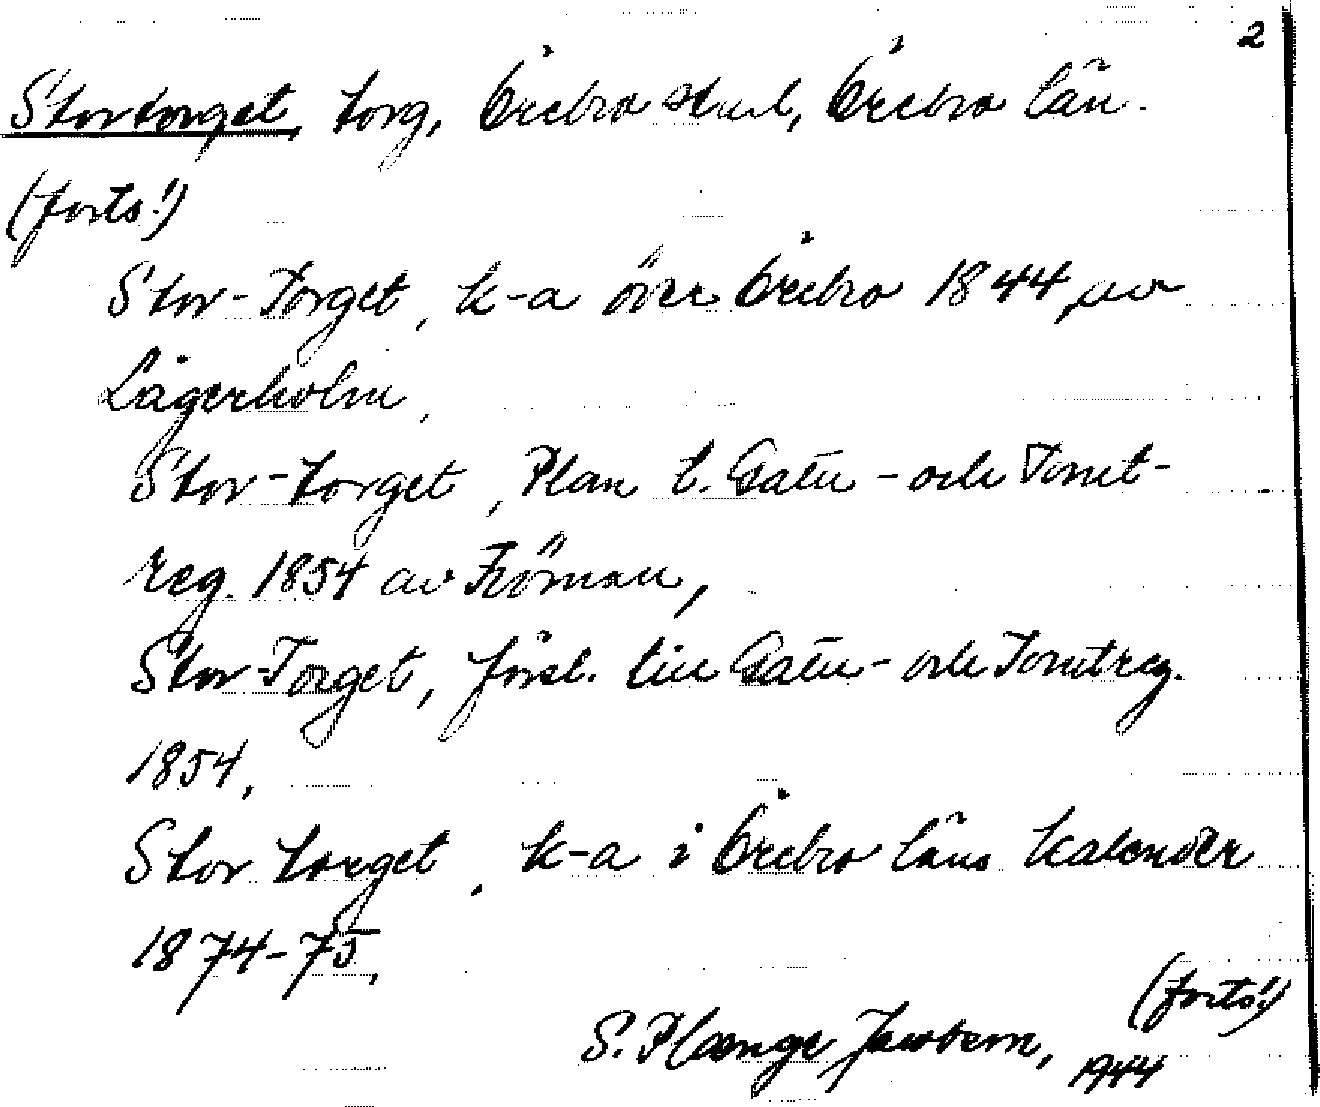 2
Stortorget, torg, Örebro stad, Örebro län.
(forts!)
Stor-Torget, k-a över Örebro 1844 av
Lagerholm,
Stor-torget, Plan t. Gatu- och Tomt-
reg. 1854 av Fröman,
Stor-Torget, försl. till Gatu- och Tomtreg.
1854,
Stor torget, k-a i Örebro läns kalender
1874-75,
(forts!)
S. Plænge Jacobson, 1944